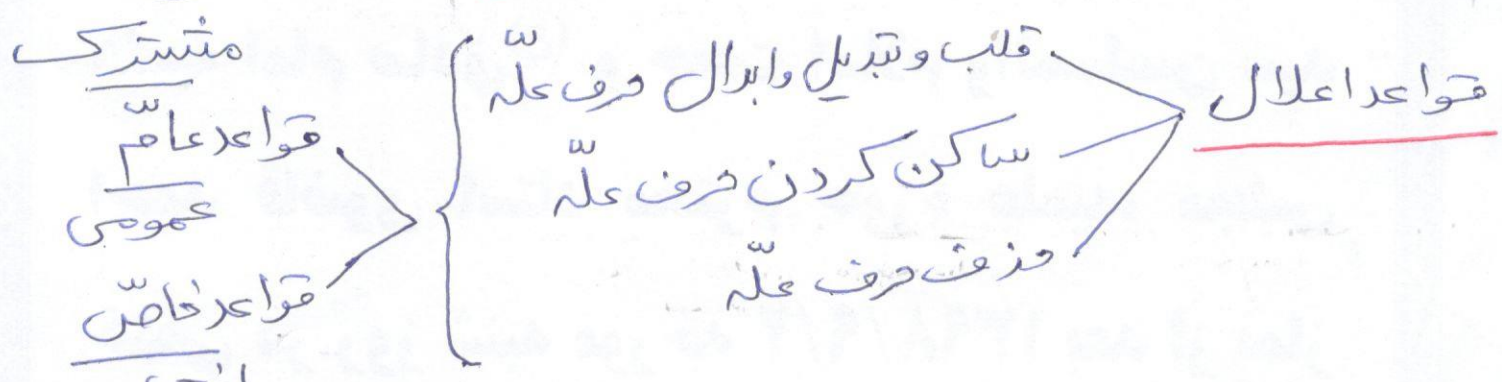 قواعد اعلال
قلب و تبدیل و ابدال حرف علّه
ساکن کردن حرف علّه
حذف حرف علّه
مشترک
قواعد عامّ
عمومی
قواعد خاصّ